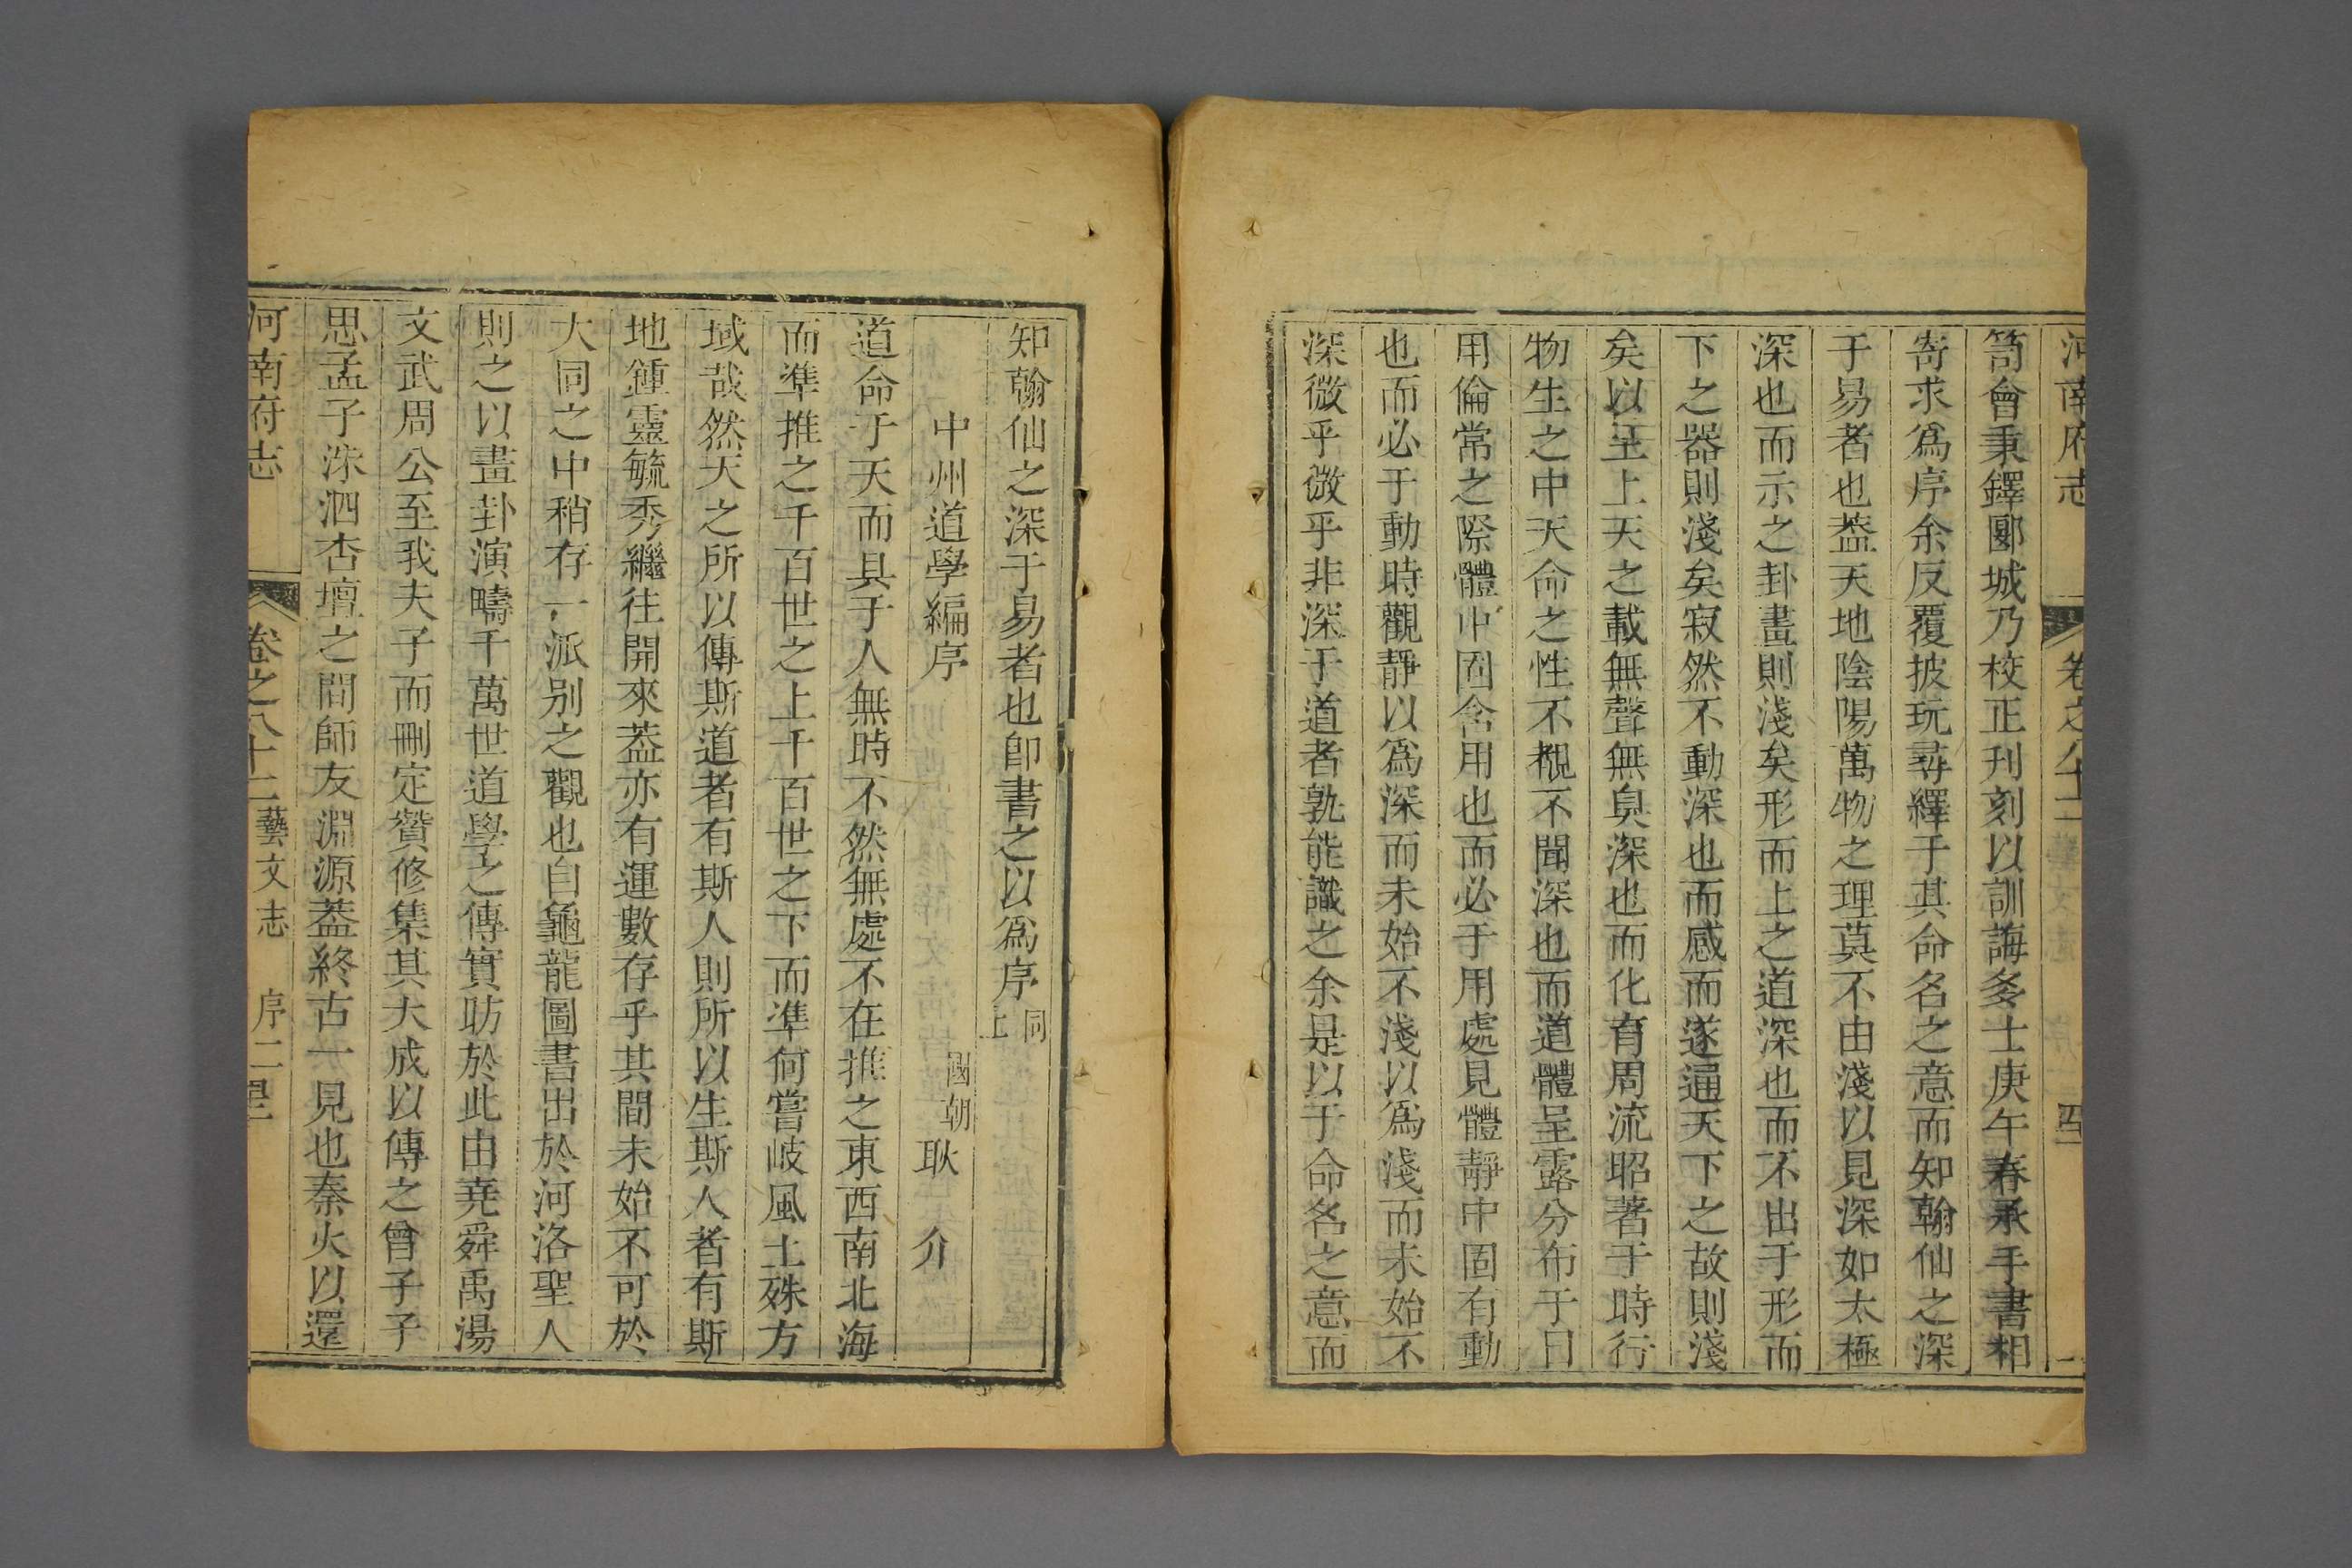 河南府志 卷之八十二
笥會秉鐸郾城乃校正刊刻以訓誨多士庚午春承手書相
寄求爲序余反覆披玩尋繹于其命名之意而知翰仙之深
于易者也葢天地陰陽萬物之理莫不由淺以見深如太極
深也而示之卦畫則淺矣形而上之道深也而不出于形而
下之器則淺矣寂然不動深也而感而遂通天下之故則淺
矣以至上天之載無聲無臭深也而化育周流昭著于時行
物生之中天命之性不覩不聞深也而道體呈露分布于日
用倫常之際體中固含用也而必于用處見體靜中固有動
也而必于動時觀靜以爲深而未始不淺以爲淺而未始不
深微乎微乎非深于道者孰能識之余是以于命名之意而
知翰仙之深于易者也卽書之以爲序 同上
中州道學編序 國朝 耿 介
道命于天而具于人無時不然無處不在推之東西南北海
而準推之千百世之上千百世之下而準何嘗岐風土殊方
域哉然天之所以傳斯道者有斯人則所以生斯人者有斯
地鍾靈毓秀繼往開來葢亦有運數存乎其間未始不可於
大同之中稍存一派别之觀也自龜龍圖書出於河洛聖人
則之以畫卦演疇千萬世道學之傳實昉於此由堯舜禹湯
文武周公至我夫子而刪定贊修集其大成以傳之曾子子
思孟子洙泗杏壇之間師友淵源葢終古一見也秦火以還
河南府志 卷之八十二 藝文志 序二